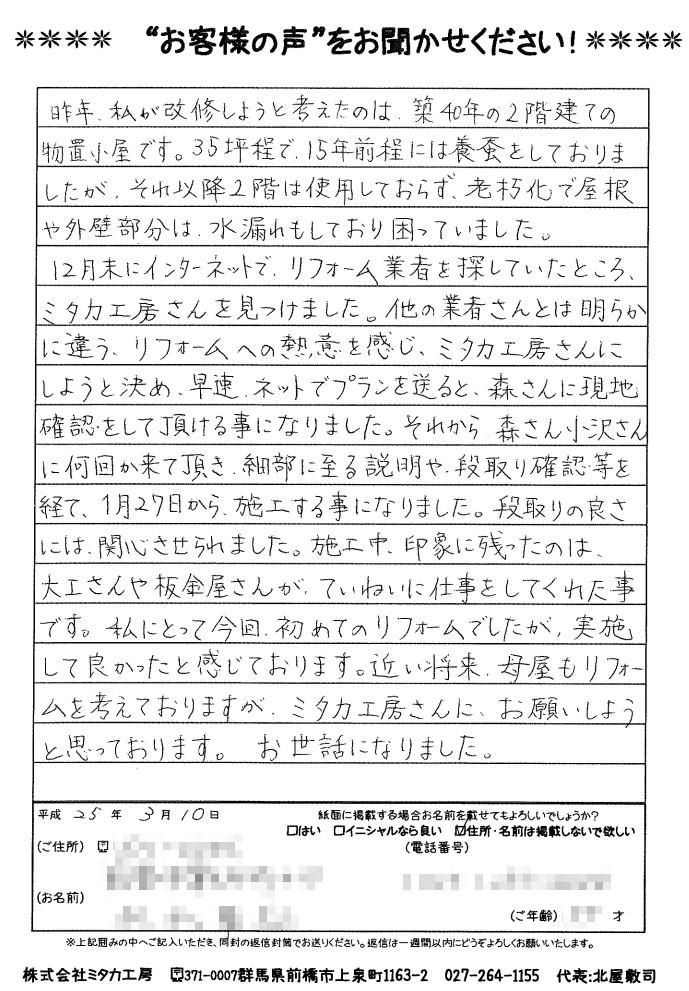 **** “お客様の声”をお聞かせください! ****
昨年、私が改修しようと考えたのは、築40年の2階建ての
物置小屋です。35坪程で、15年前程には養蚕をしておりま
したが、それ以降2階は使用しておらず、老朽化で屋根
や外壁部分は、水漏れもしており困っていました。
12月末にインターネットで、リフォーム業者を探していたところ、
ミタカ工房さんを見つけました。他の業者さんとは明らか
に違う、リフォームへの熱意を感じ、ミタカ工房さんに
しようと決め、早速、ネットでプランを送ると、森さんに現地
確認をして頂ける事になりました。それから 森さん小沢さん
に何回か来て頂き、細部に至る説明や、段取り確認等を
経て、1月27日から、施工する事になりました。段取りの良さ
には、関心させられました。施工中、印象に残ったのは、
大工さんや板金屋さんが、ていねいに仕事をしてくれた事
です。私にとって今回、初めてのリフォームでしたが、実施
して良かったと感じております。近い将来、母屋もリフォー
ムを考えておりますが、ミタカ工房さんに、お願いしよう
と思っております。 お世話になりました。
平成 25 年 3 月 10 日 紙面に掲載する場合お名前を載せてもよろしいでしょうか?
□はい □イニシャルなら良い ☑住所・名前は掲載しないで欲しい
(ご住所) 〒 (電話番号)
(お名前)
(ご年齢) 才
※上記囲みの中へご記入いただき、同封の返信封筒でお送りください。返信は一週間以内にどうぞよろしくお願いいたします。
株式会社ミタカ工房 〒371-0007群馬県前橋市上泉町1163-2 027-264-1155 代表:北屋敷司